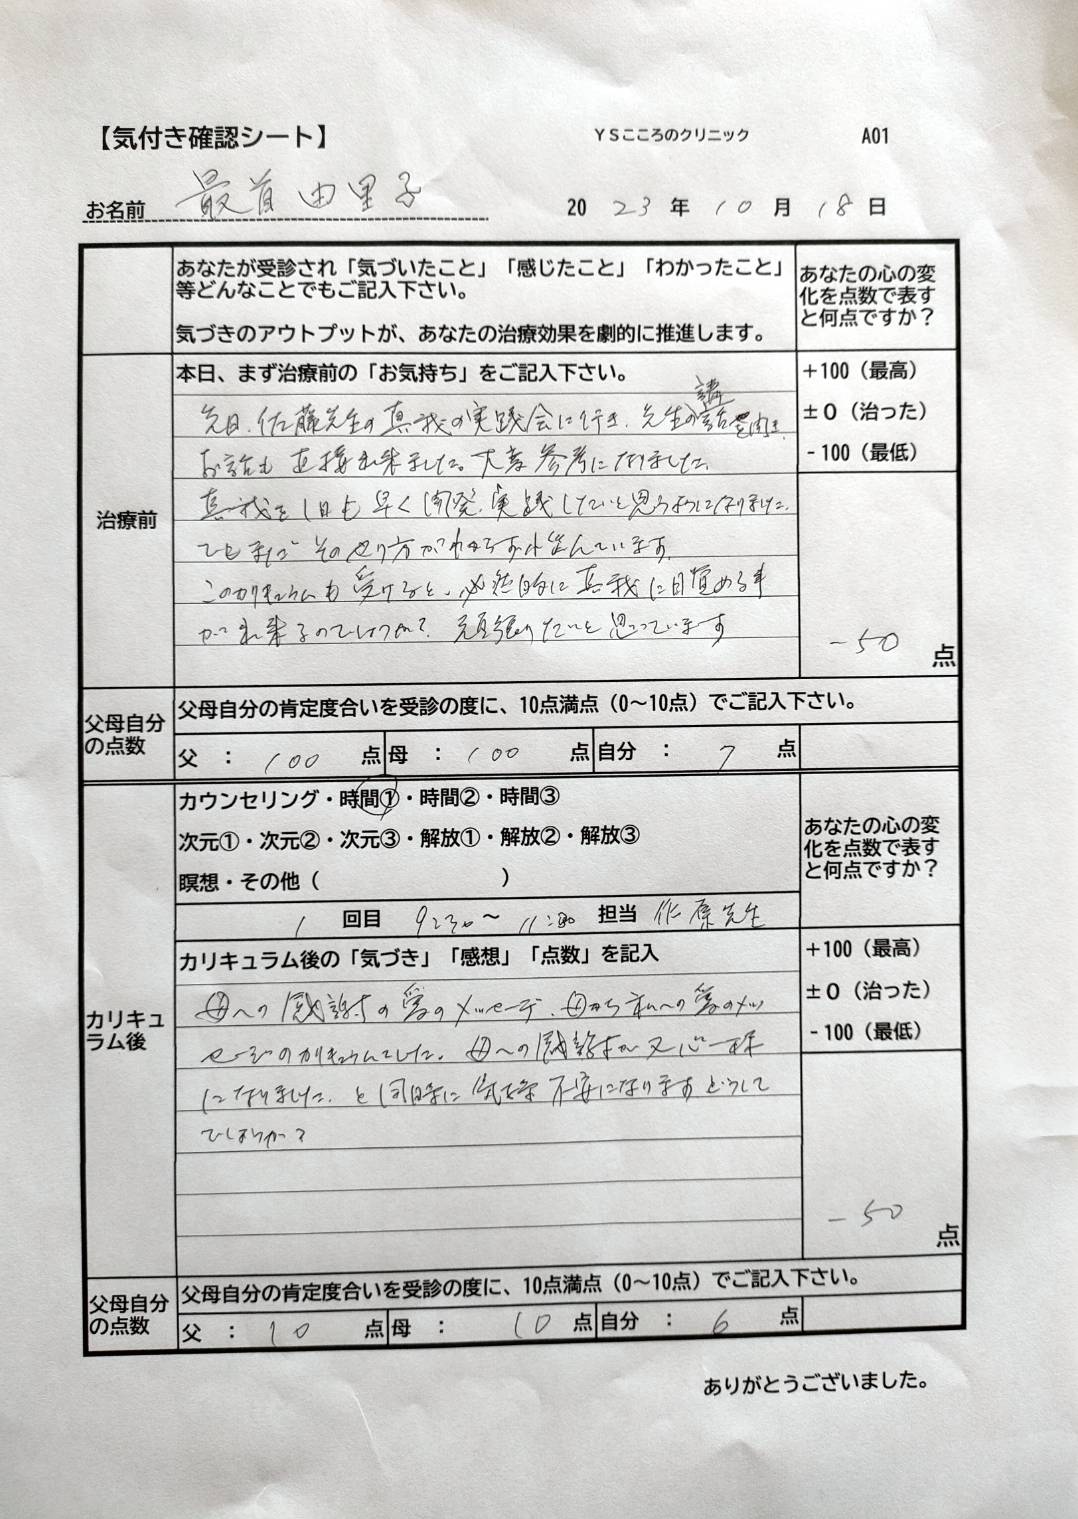 【気付き確認シート】 YSこころのクリニック A01
お名前 最首由里子 2023年10月18日
あなたが受診され「気づいたこと」「感じたこと」「わかったこと」
等どんなことでもご記入下さい。
気づきのアウトプットが、あなたの治療効果を劇的に推進します。
あなたの心の変
化を点数で表す
と何点ですか？
治療前
本日、まず治療前の「お気持ち」をご記入下さい。
先日、佐藤先生の真我の実践会に行き、先生の講話を聞き、
お話も直接出来ました。大変参考になりました。
真我を1日も早く開発、実践したいと思うようになりました。
でもまだそのやり方がわからず
このカリキュラムも受けると、必然的に真我に目覚める事
が出来るのでしょうか？頑張りたいと思っています
+100（最高）
±0（治った）
-100（最低）
-50 点
父母自分
の点数
父母自分の肯定度合いを受診の度に、10点満点（0～10点）でご記入下さい。
父 ： 100 点 母 ： 100 点 自分 ： 7 点
カウンセリング・時間①・時間②・時間③
次元①・次元②・次元③・解放①・解放②・解放③
瞑想・その他（ ）
1 回目 9:30～11:00 担当 佐原先生
あなたの心の変
化を点数で表す
と何点ですか？
カリキュ
ラム後
カリキュラム後の「気づき」「感想」「点数」を記入
母への感謝の愛のメッセージ、母から私への愛のメッ
セージのカリキュラムでした。母への感謝が又心一杯
になりました。と同時に気持不安になりますどうして
でしょうか？
+100（最高）
±0（治った）
-100（最低）
-50 点
父母自分
の点数
父母自分の肯定度合いを受診の度に、10点満点（0～10点）でご記入下さい。
父 ： 10 点 母 ： 10 点 自分 ： 6 点
ありがとうございました。